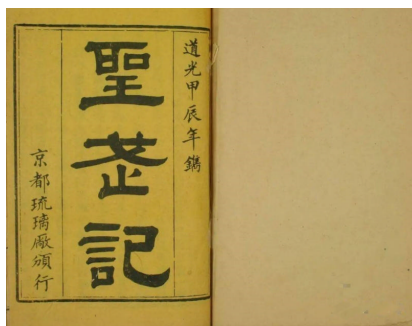 道光甲辰年鐫
聖武記
京都琉璃廠頒行